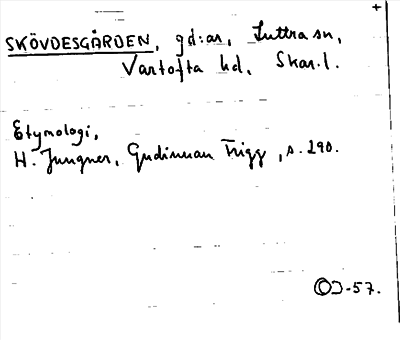 +
SKÖVDESGÅRDEN, gd:ar, Luttra sn,
Vartofta hd, Skar.l.
Etymologi,
H. Jungner, Gudinnan Frigg, s. 290.
OJ-57.